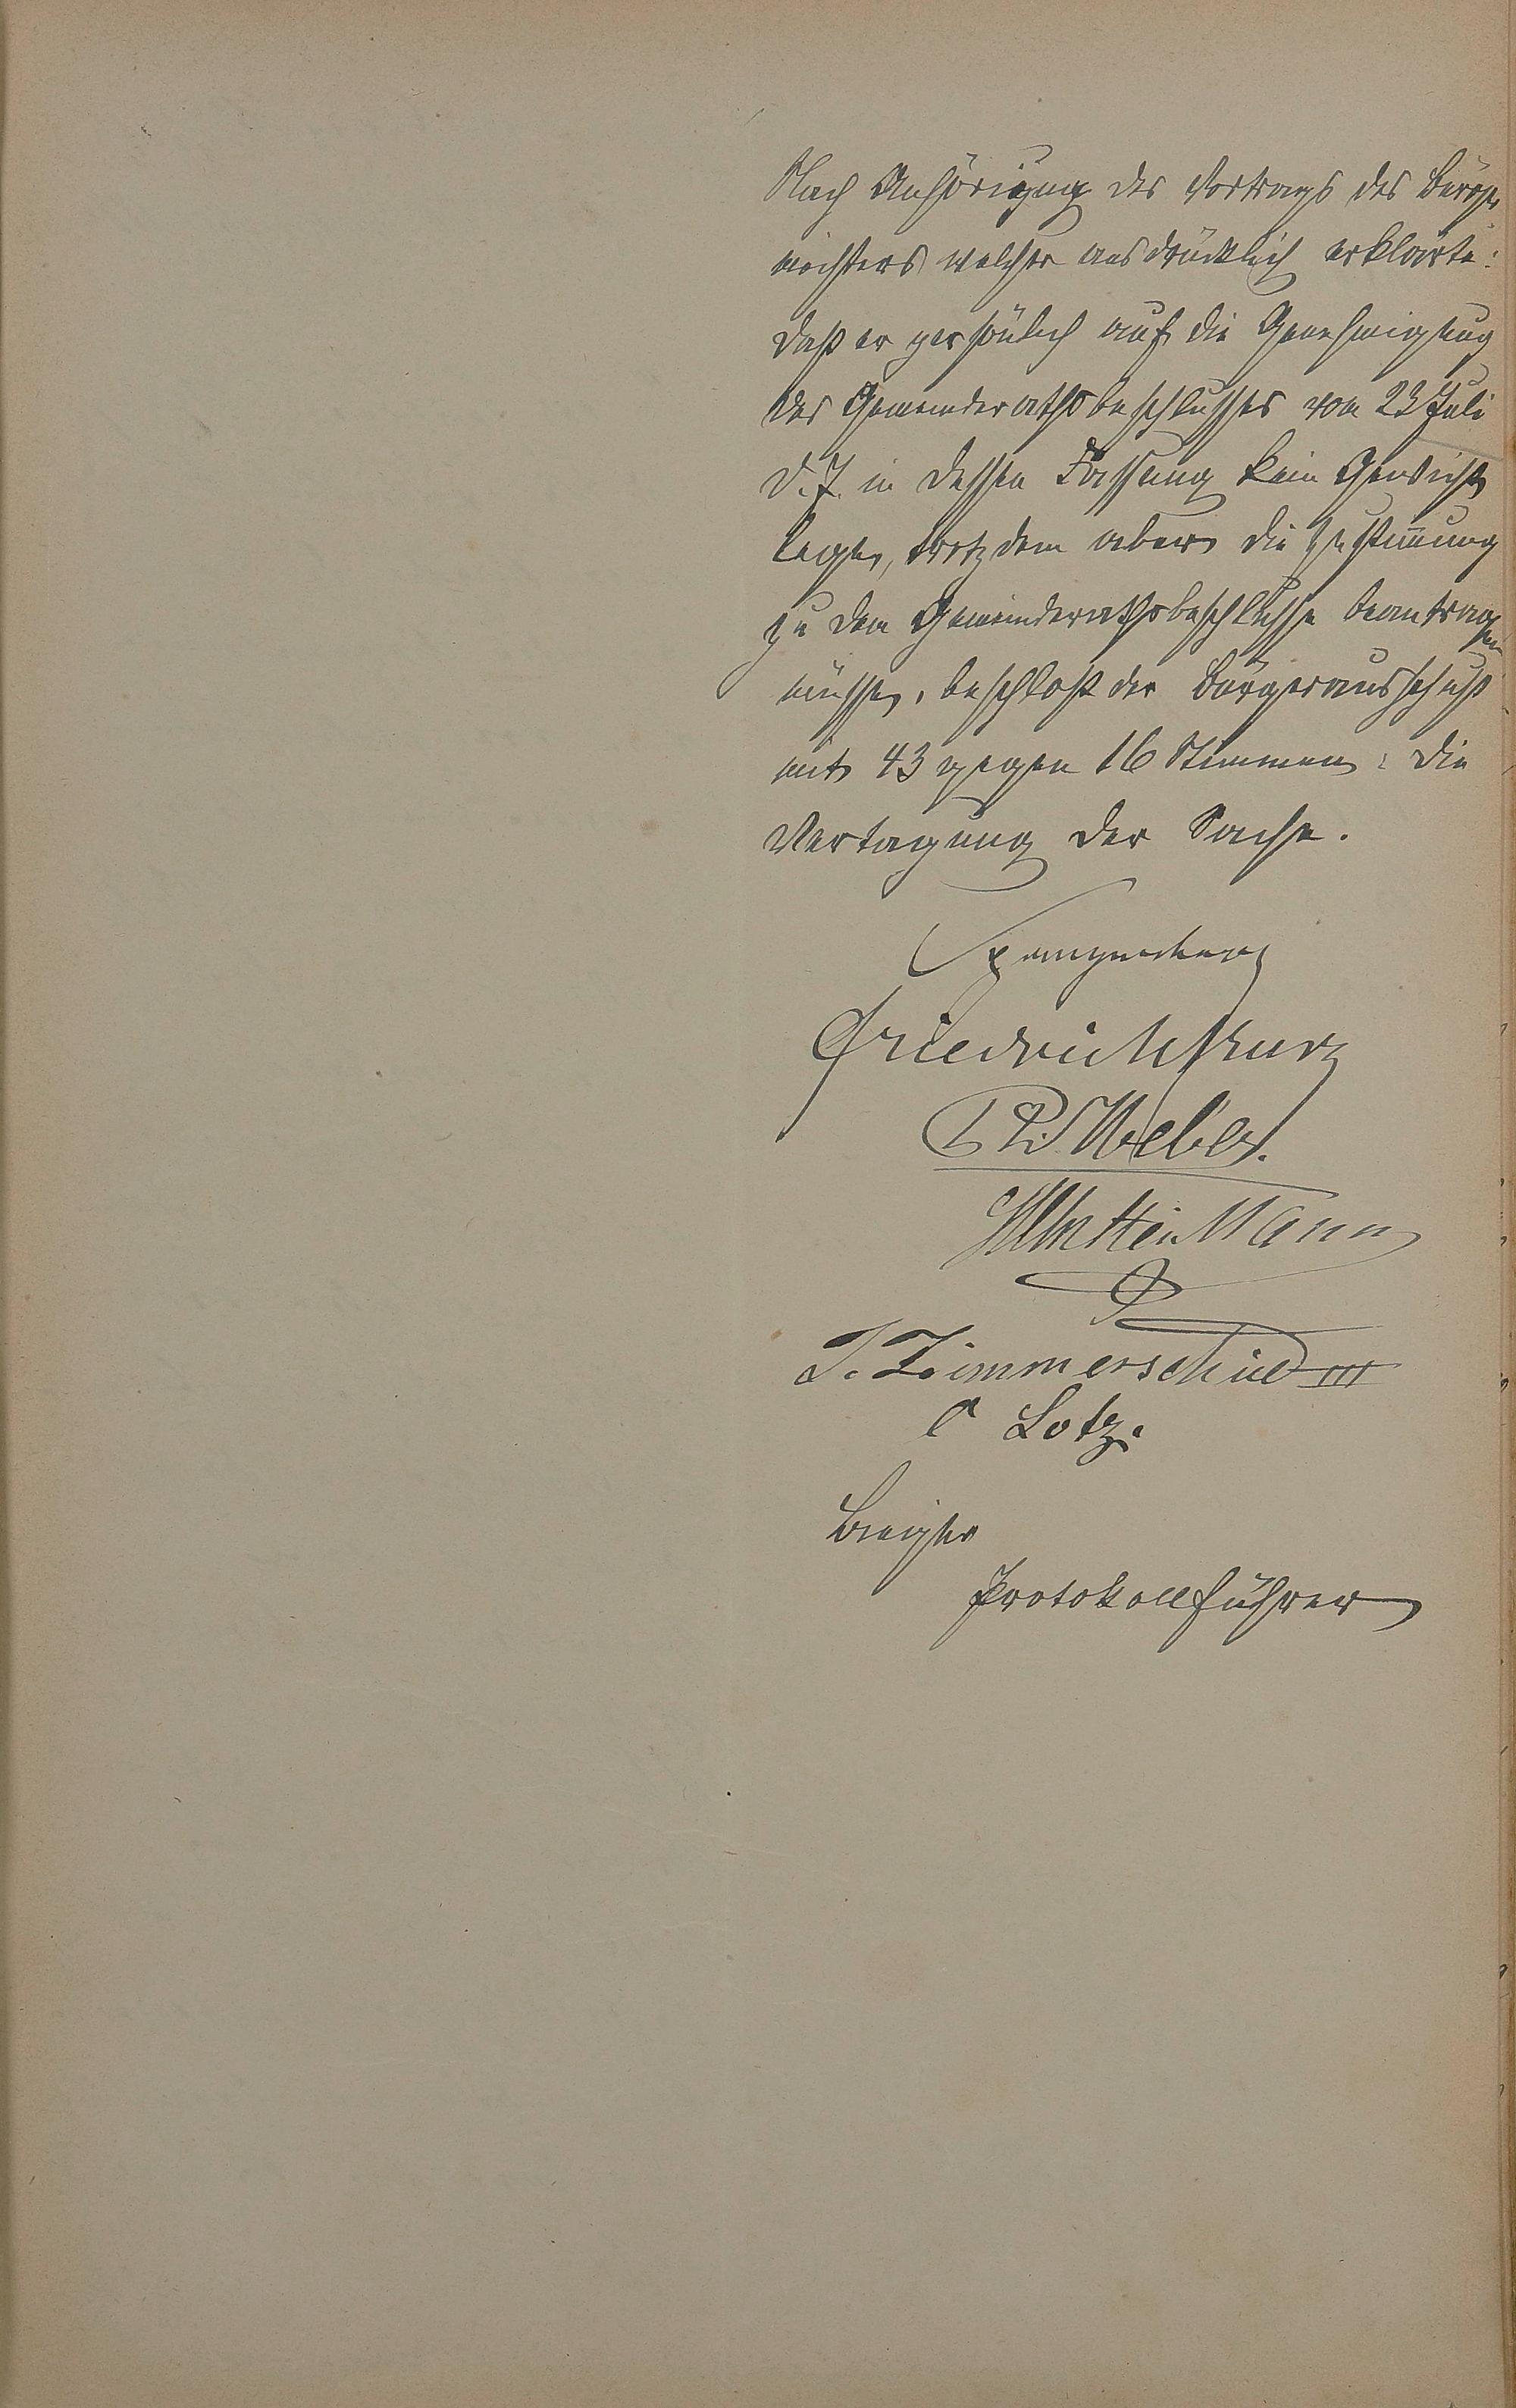 Nach Anhörigung des Vortrags des Bürger
meisters welcher ausdrücklich erklärte:
daß er persönlich auf die Genehmigung
des Gemeinderathsbeschlusses vom 23 Juli
d. J. in dessen Fassung kein Gewicht
lege, trotzdem aber die Zustimmung
zu dem Gemeinderathsbeschlusse beantragen
müsse, beschloß der Bürgerausschuß
mit 43 gegen 16 Stimmen: die
Vertagung der Sache.
Friedrich Kurz
Weber.
Mann
J. Zimmerschied III
C Lotz.
Protokollführer